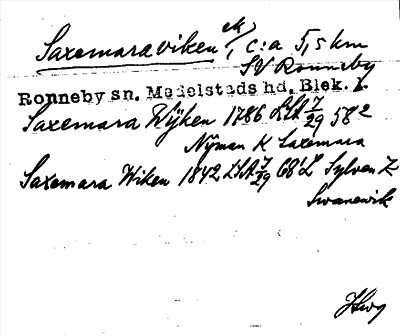 Saxemaraviken vik, c:a 5,5 km
SV Ronneby
Ronneby sn. Medelstads hd. Blek. l.
Saxemara Wijken 1786 LSA 7/29 58²
Nyman K Saxemara
Saxemara Wiken 1842 LSA 7/29 68¹ L Sylvén K
Swanewik